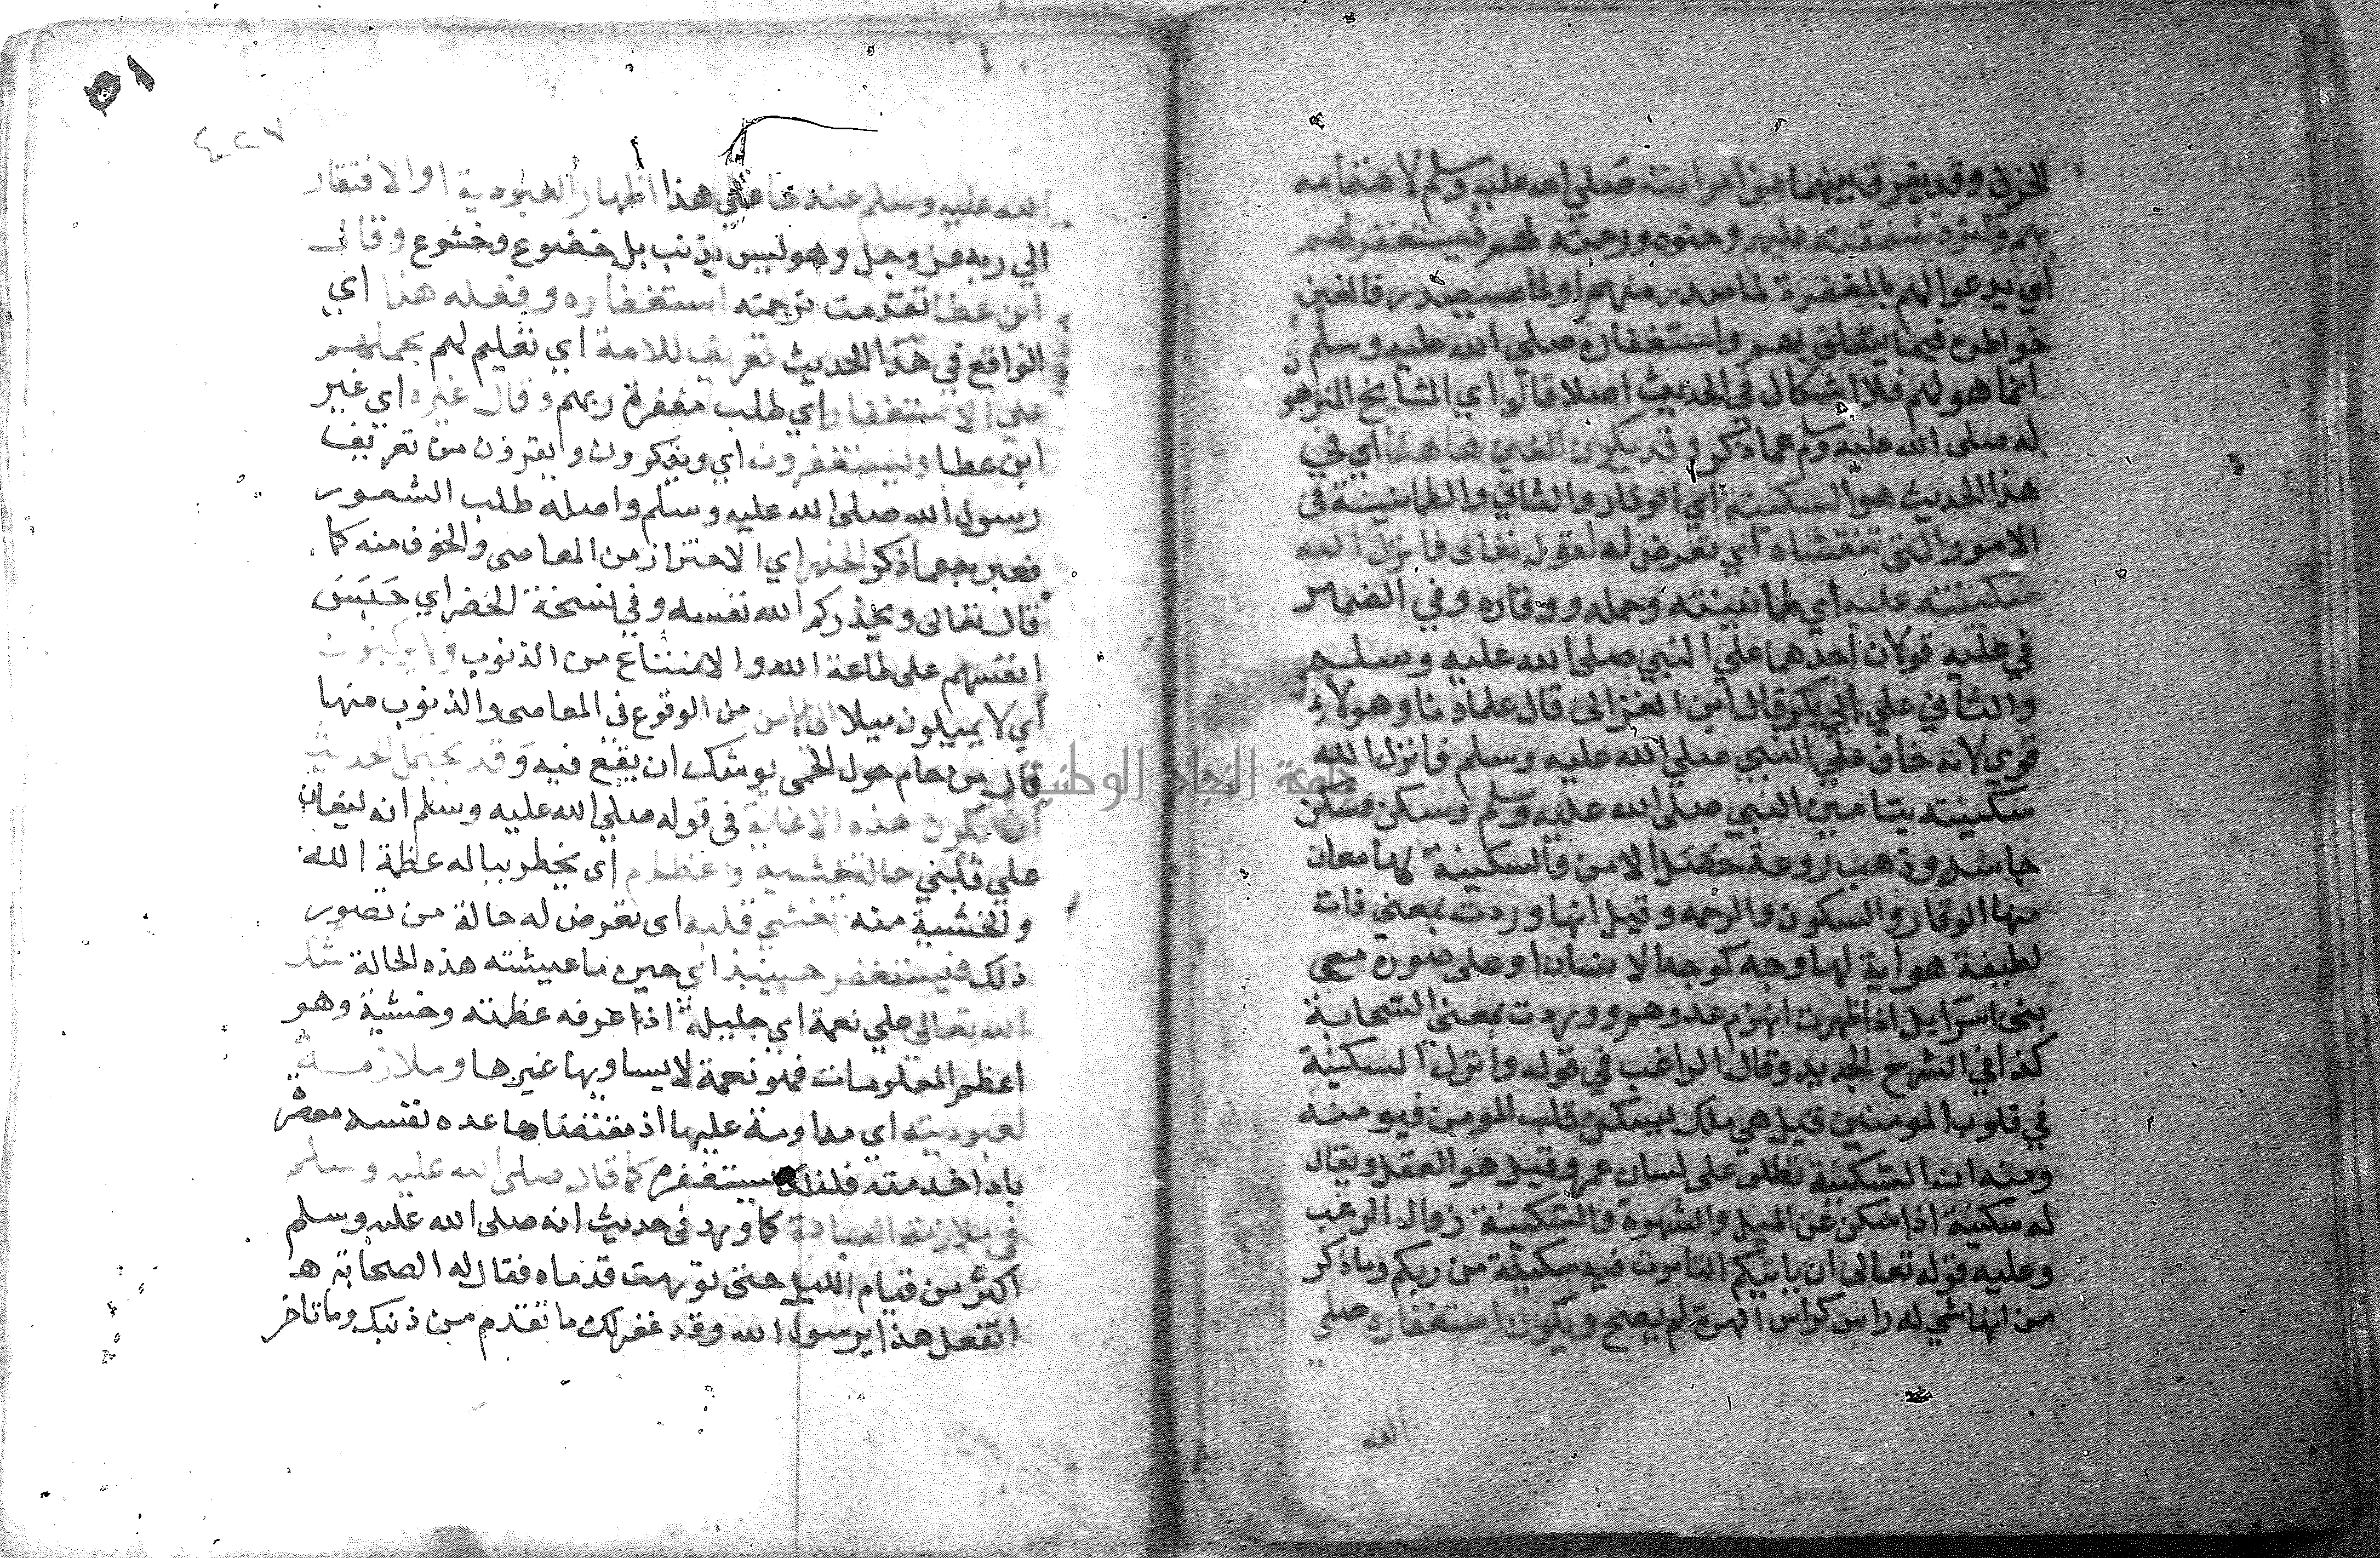 الحزن وقد يفرق بينهما من امر امته صلي الله عليه وسلم لاهتمامه
بهم وكثرة شفقته عليهم وحنوه ورحمته لهم فيستغفر لهم
أي يدعوا لهم بالمغفرة لما صدر منهم او لما سيصدر فالغين
خواطره فيما يتعلق بهم واستغفاره صلي الله عليه وسلم
انما هو لهم فلا اشكال في الحديث اصلا قالوا اي المشايخ
له صلى الله عليه وسلم عما ذكر وقد يكون الغين هاهنا اي في
هذا الحديث هو السكينة اي الوقار والثاني والطمانينة في
الامور التي تتغشاه اي تعرض له لقوله تعالى فانزل الله
سكينته عليه اي طمانينته وحمله ووقاره وفي الضمير
في عليه قولان احدهما علي النبي صلى الله عليه وسلم
والثاني علي ابي بكر قال ابن العربى قال علماونا وهولاء
قوي لانه خاف علي النبي صلي الله عليه وسلم فانزل الله
سكينته بتامين النبي صلى الله عليه وسلم وسكن فسكن
جاشه وذهب روعة حصل الامن والسكينة لها معان
منها الوقار والسكون والرحمه وقيل انها وردت بمعني
لطيفة هواية لها وجه كوجه الانسان او على صورة
بنى اسرايل اذا ظهرت انهزم عدوهم ووردت بمعني السحابة
كذا في الشرح الجديد وقال الراغب في قوله وانزل السكينة
في قلوب المومنين قيل هي ملك يسكن قلب المومن فيومنه
ومنه ان السكينة تطلق على لسان عمر وقيل هو العقل ويقال
له سكينة اذا سكن عن الميل والشهوة والسكينة زوال الرعب
وعليه قوله تعالى ان ياتيكم التابوت فيه سكينة من ربكم وما ذكر
من انها شي له راس كراس الهرة لم يصح ويكون استغفاره صلي
الله
٥١
٤٢٧
الله عليه وسلم عندها علي هذا اظهار العبودية او الافتقار
الي ربه عز وجل وهو ليس بذنب بل خضوع وخشوع وقال
ابن عطا تقدمت ترجمته استغفاره وفعله هذا اي
الواقع في هذا الحديث تعريف للامة اي تعليم لهم بحملهم
علي الاستغفار اي طلب مغفرة ربهم وقال غيره اي غير
ابن عطا ويستغفرون اي ويذكرون من تعريف
رسول الله صلى الله عليه وسلم واصله طلب الشعور
فعبر به عما ذكر الحذر اي الاحتراز من المعاصى والخوف منه كما
قال تعالى ويحذركم الله نفسه وفي نسخة الحصر اي حبس
انفسهم على طاعة الله والامتناع من الذنوب ولا يركنون
أي لا يميلون ميلا الى الامن من الوقوع في المعاصى والذنوب منها
قال من حام حول الحمى يوشك ان يقع فيه وقد يحتمل الحديث
ان تكون هذه الاغانة في قوله صلي الله عليه وسلم انه ليغان
علي قلبي حالة خشية واعظام أي يخطر بباله عظمة الله
والخشية منه تغشي قلبه اى تعرض له حالة من تصور
ذلك فيستغفر حينيذ اي حين ما غيشته هذه الحالة شكر
الله تعالى علي نعمة اي جليلة اذا عرفه عظمته وخشية وهو
اعظم المعلومات فهو نعمة لا يساويها غيرها وملازمة
لعبوديته اي مداومة عليها اذ مقتضاها عده نفسه مقصر
باداخدمته فلذلك يستغفره كما قال صلى الله عليه وسلم
في ملازمة العبادة كما ورد في حديث انه صلى الله عليه وسلم
اكثر من قيام الليل حتى تورمت قدماه فقال له الصحابة
اتفعل هذا يرسول الله وقد غفر لك ما تقدم من ذنبك وما تاخر
جامعة النجاح الوطنية